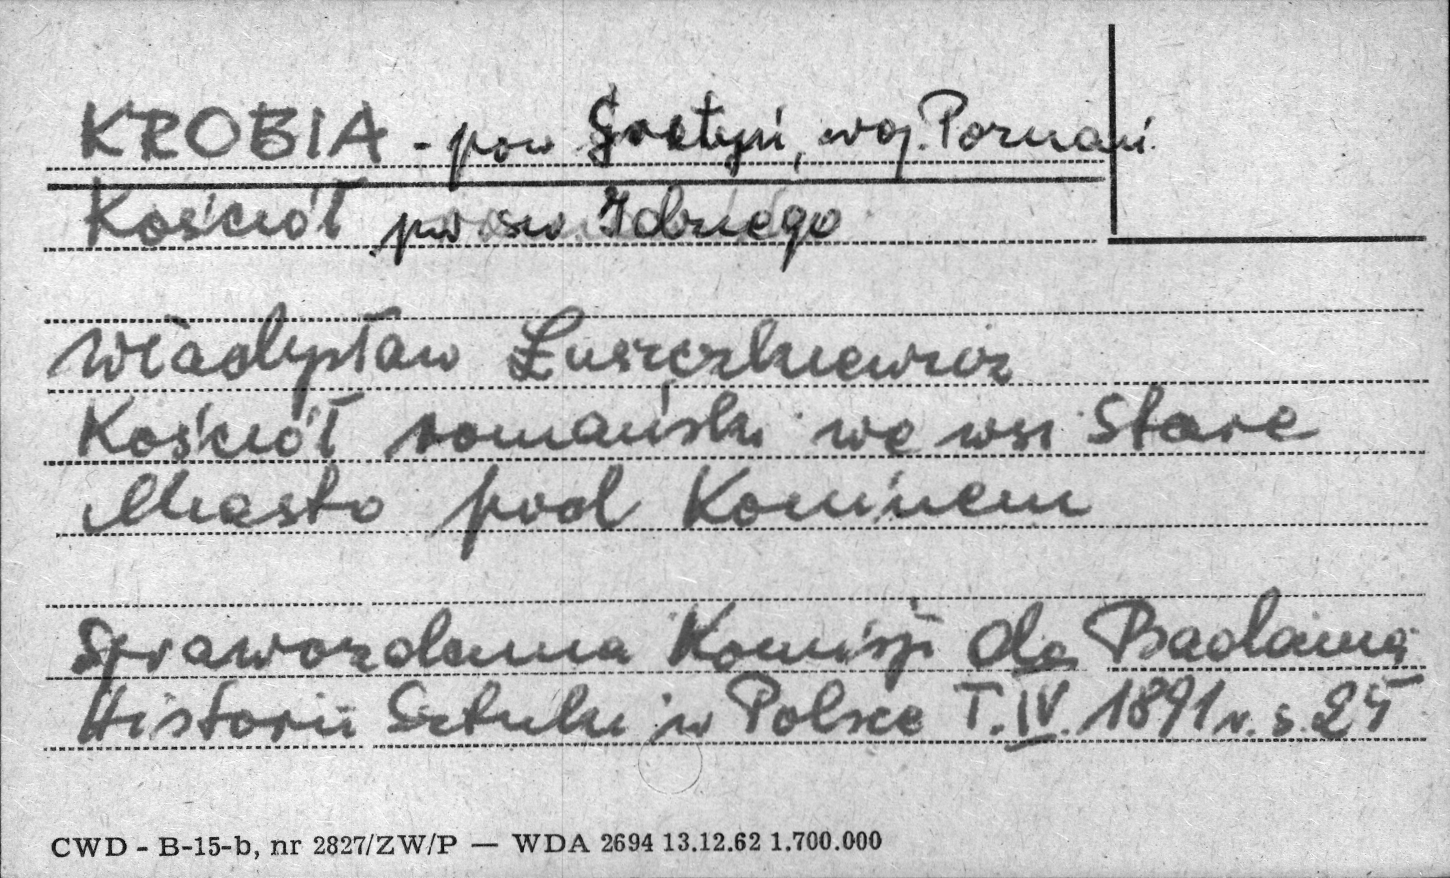 KROBIA - pow Gostyń, woj. Poznań
Kościół pw św. Idziego
Władysław Łuszczkiewicz
Kościół romański we wsi Stare
Miasto pod Koninem
Sprawozdania Komisji do Badania
Historii Sztuki w Polsce T. IV. 1891 r. s. 25
CWD - B-15-b, nr 2827/ZW/P — WDA 2694 13.12.62 1.700.000